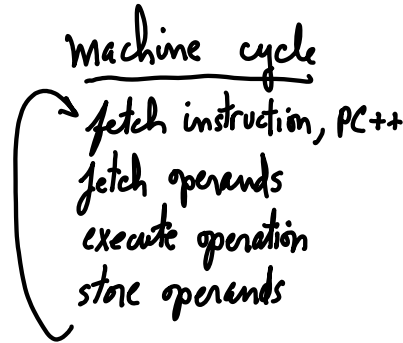 machine cycle
fetch instruction, PC++
fetch operands
execute operation
store operands